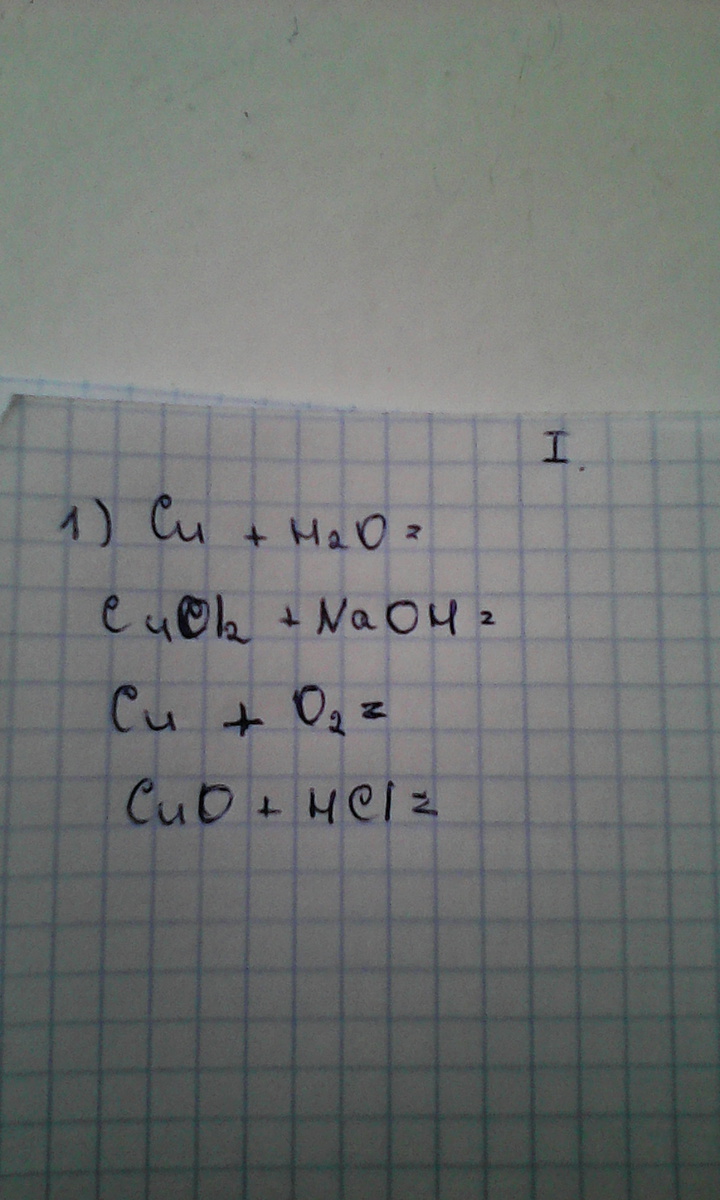 I.
1) Cu + H₂O =
CuCl₂ + NaOH =
Cu + O₂ =
CuO + HCl =